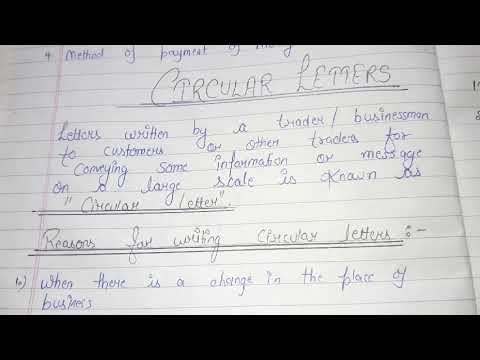 4. Method of payment of
CIRCULAR LETTERS
Letters written by a trader/businessman
to customers or other traders for
conveying some information or message
on a large scale is known as
"Circular letter".
Reasons for writing Circular letters :-
1.) When there is a change in the place of
business